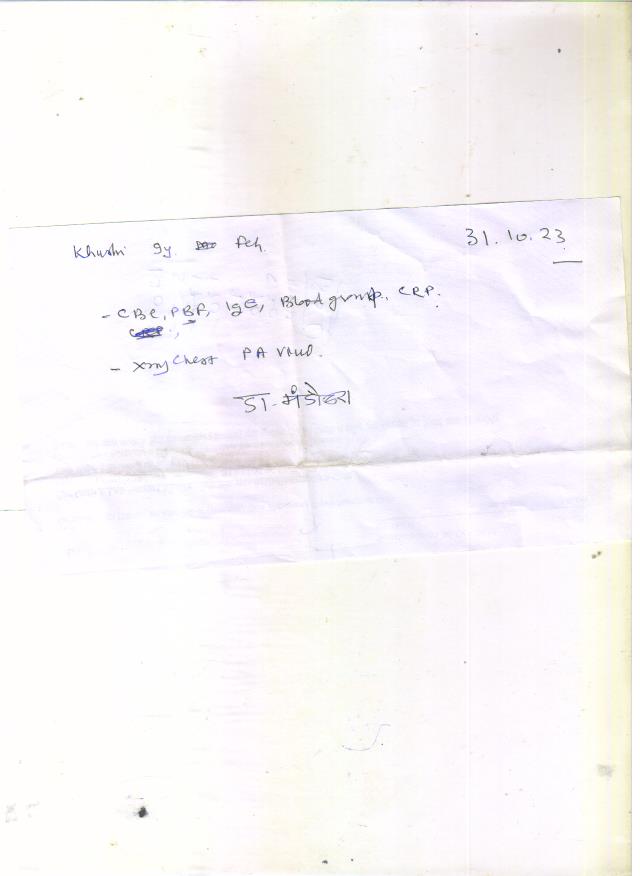 Khushi 9y. Feh. 31.10.23
- CBC, PBF, IgE, Blood group. CRP.
- Xray Chest PA View.
डा. मंडोवरा